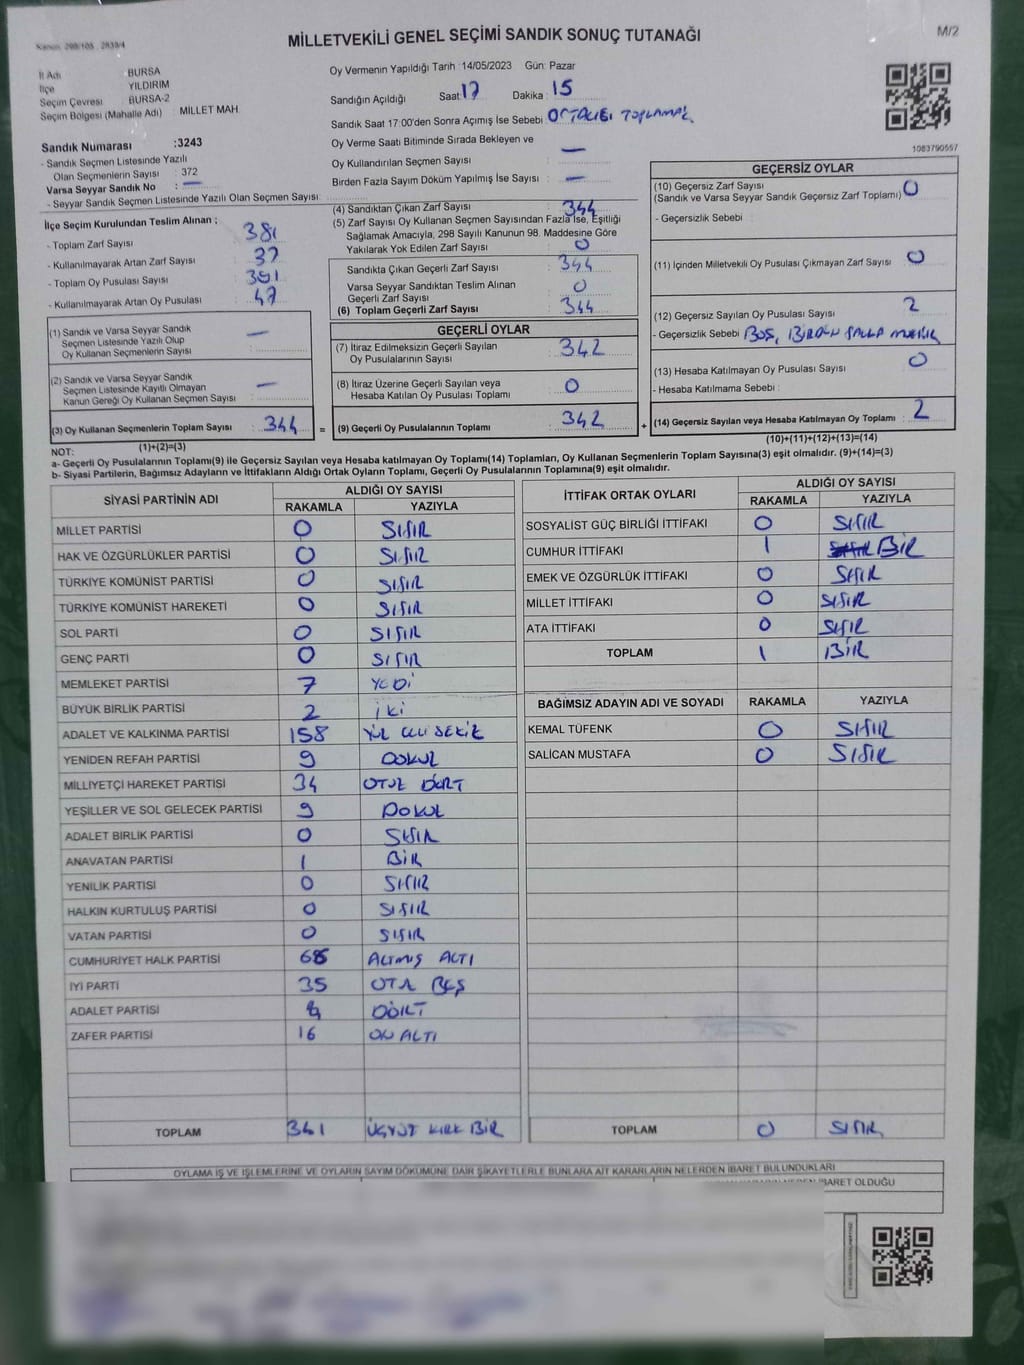 Kanun: 298/105 , 2839/4
M/2
MİLLETVEKİLİ GENEL SEÇİMİ SANDIK SONUÇ TUTANAĞI
İl Adı BURSA
İlçe YILDIRIM
Seçim Çevresi BURSA-2
Seçim Bölgesi (Mahalle Adı) MİLLET MAH.
Oy Vermenin Yapıldığı Tarih :14/05/2023 Gün: Pazar
Sandığın Açıldığı Saat: 17 Dakika : 15
Sandık Saat 17:00'den Sonra Açımış İse Sebebi : ORTALIĞI TOPLAMAK
Oy Verme Saati Bitiminde Sırada Bekleyen ve
Oy Kullandırılan Seçmen Sayısı : —
Birden Fazla Sayım Döküm Yapılmış İse Sayısı : —
1083790557
Sandık Numarası :3243
- Sandık Seçmen Listesinde Yazılı
Olan Seçmenlerin Sayısı : 372
Varsa Seyyar Sandık No : —
- Seyyar Sandık Seçmen Listesinde Yazılı Olan Seçmen Sayısı :
İlçe Seçim Kurulundan Teslim Alınan ;
- Toplam Zarf Sayısı : 381
- Kullanılmayarak Artan Zarf Sayısı : 37
- Toplam Oy Pusulası Sayısı : 391
- Kullanılmayarak Artan Oy Pusulası : 47
(1) Sandık ve Varsa Seyyar Sandık
Seçmen Listesinde Yazılı Olup
Oy Kullanan Seçmenlerin Sayısı : —
(2) Sandık ve Varsa Seyyar Sandık
Seçmen Listesinde Kayıtlı Olmayan
Kanun Gereği Oy Kullanan Seçmen Sayısı : —
(3) Oy Kullanan Seçmenlerin Toplam Sayısı : 344 =
(1)+(2)=(3)
(4) Sandıktan Çıkan Zarf Sayısı : 344
(5) Zarf Sayısı Oy Kullanan Seçmen Sayısından Fazla İse, Eşitliği
Sağlamak Amacıyla, 298 Sayılı Kanunun 98. Maddesine Göre
Yakılarak Yok Edilen Zarf Sayısı : 0
Sandıkta Çıkan Geçerli Zarf Sayısı : 344
Varsa Seyyar Sandıktan Teslim Alınan
Geçerli Zarf Sayısı : 0
(6) Toplam Geçerli Zarf Sayısı : 344
GEÇERLİ OYLAR
(7) İtiraz Edilmeksizin Geçerli Sayılan
Oy Pusulalarının Sayısı : 342
(8) İtiraz Üzerine Geçerli Sayılan veya
Hesaba Katılan Oy Pusulası Toplamı : 0
(9) Geçerli Oy Pusulalarının Toplamı : 342 +
GEÇERSİZ OYLAR
(10) Geçersiz Zarf Sayısı
(Sandık ve Varsa Seyyar Sandık Geçersiz Zarf Toplamı) : 0
- Geçersizlik Sebebi :
(11) İçinden Milletvekili Oy Pusulası Çıkmayan Zarf Sayısı : 0
(12) Geçersiz Sayılan Oy Pusulası Sayısı : 2
- Geçersizlik Sebebi : BOŞ, BİRDEN FAZLA MÜHÜR
(13) Hesaba Katılmayan Oy Pusulası Sayısı : 0
- Hesaba Katılmama Sebebi :
(14) Geçersiz Sayılan veya Hesaba Katılmayan Oy Toplamı : 2
(10)+(11)+(12)+(13)=(14)
NOT:
a- Geçerli Oy Pusulalarının Toplamı(9) ile Geçersiz Sayılan veya Hesaba katılmayan Oy Toplamı(14) Toplamları, Oy Kullanan Seçmenlerin Toplam Sayısına(3) eşit olmalıdır. (9)+(14)=(3)
b- Siyasi Partilerin, Bağımsız Adayların ve İttifakların Aldığı Ortak Oyların Toplamı, Geçerli Oy Pusulalarının Toplamına(9) eşit olmalıdır.
SİYASİ PARTİNİN ADI ALDIĞI OY SAYISI
RAKAMLA YAZIYLA
MİLLET PARTİSİ 0 SIFIR
HAK VE ÖZGÜRLÜKLER PARTİSİ 0 SIFIR
TÜRKİYE KOMÜNİST PARTİSİ 0 SIFIR
TÜRKİYE KOMÜNİST HAREKETİ 0 SIFIR
SOL PARTİ 0 SIFIR
GENÇ PARTİ 0 SIFIR
MEMLEKET PARTİSİ 7 YEDİ
BÜYÜK BİRLİK PARTİSİ 2 İKİ
ADALET VE KALKINMA PARTİSİ 158 YÜZ ELLİ SEKİZ
YENİDEN REFAH PARTİSİ 9 DOKUZ
MİLLİYETÇİ HAREKET PARTİSİ 34 OTUZ DÖRT
YEŞİLLER VE SOL GELECEK PARTİSİ 9 DOKUZ
ADALET BİRLİK PARTİSİ 0 SIFIR
ANAVATAN PARTİSİ 1 BİR
YENİLİK PARTİSİ 0 SIFIR
HALKIN KURTULUŞ PARTİSİ 0 SIFIR
VATAN PARTİSİ 0 SIFIR
CUMHURİYET HALK PARTİSİ 66 ALTMIŞ ALTI
İYİ PARTİ 35 OTUZ BEŞ
ADALET PARTİSİ 4 DÖRT
ZAFER PARTİSİ 16 ON ALTI
TOPLAM 341 ÜÇYÜZ KIRK BİR
İTTİFAK ORTAK OYLARI ALDIĞI OY SAYISI
RAKAMLA YAZIYLA
SOSYALİST GÜÇ BİRLİĞİ İTTİFAKI 0 SIFIR
CUMHUR İTTİFAKI 1 BİR
EMEK VE ÖZGÜRLÜK İTTİFAKI 0 SIFIR
MİLLET İTTİFAKI 0 SIFIR
ATA İTTİFAKI 0 SIFIR
TOPLAM 1 BİR
BAĞIMSIZ ADAYIN ADI VE SOYADI RAKAMLA YAZIYLA
KEMAL TÜFENK 0 SIFIR
SALİCAN MUSTAFA 0 SIFIR
TOPLAM 0 SIFIR
OYLAMA İŞ VE İŞLEMLERİNE VE OYLARIN SAYIM DÖKÜMÜNE DAİR ŞİKAYETLERLE BUNLARA AİT KARARLARIN NELERDEN İBARET BULUNDUKLARI
İBARET OLDUĞU